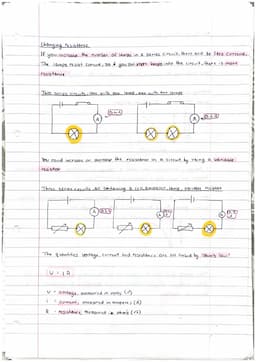 Changing Resistance
If you increase the number of lamps in a series circuit, there will be less current.
The lamps resist current, so if you put more lamps into the circuit, there is more
resistance
Two series circuits, one with one lamp, one with two lamps
A
A
You could increase or decrease the resistance in a circuit by using a variable
resistor
Three series circuits, all containing a
lamp, variable resistor
A
A
A
The quantities voltage, current and resistance are all linked by
V = IR
V = voltage, measured in volts (V)
I = current, measured in amperes (A)
R = resistance, measured in ohms (Ω)